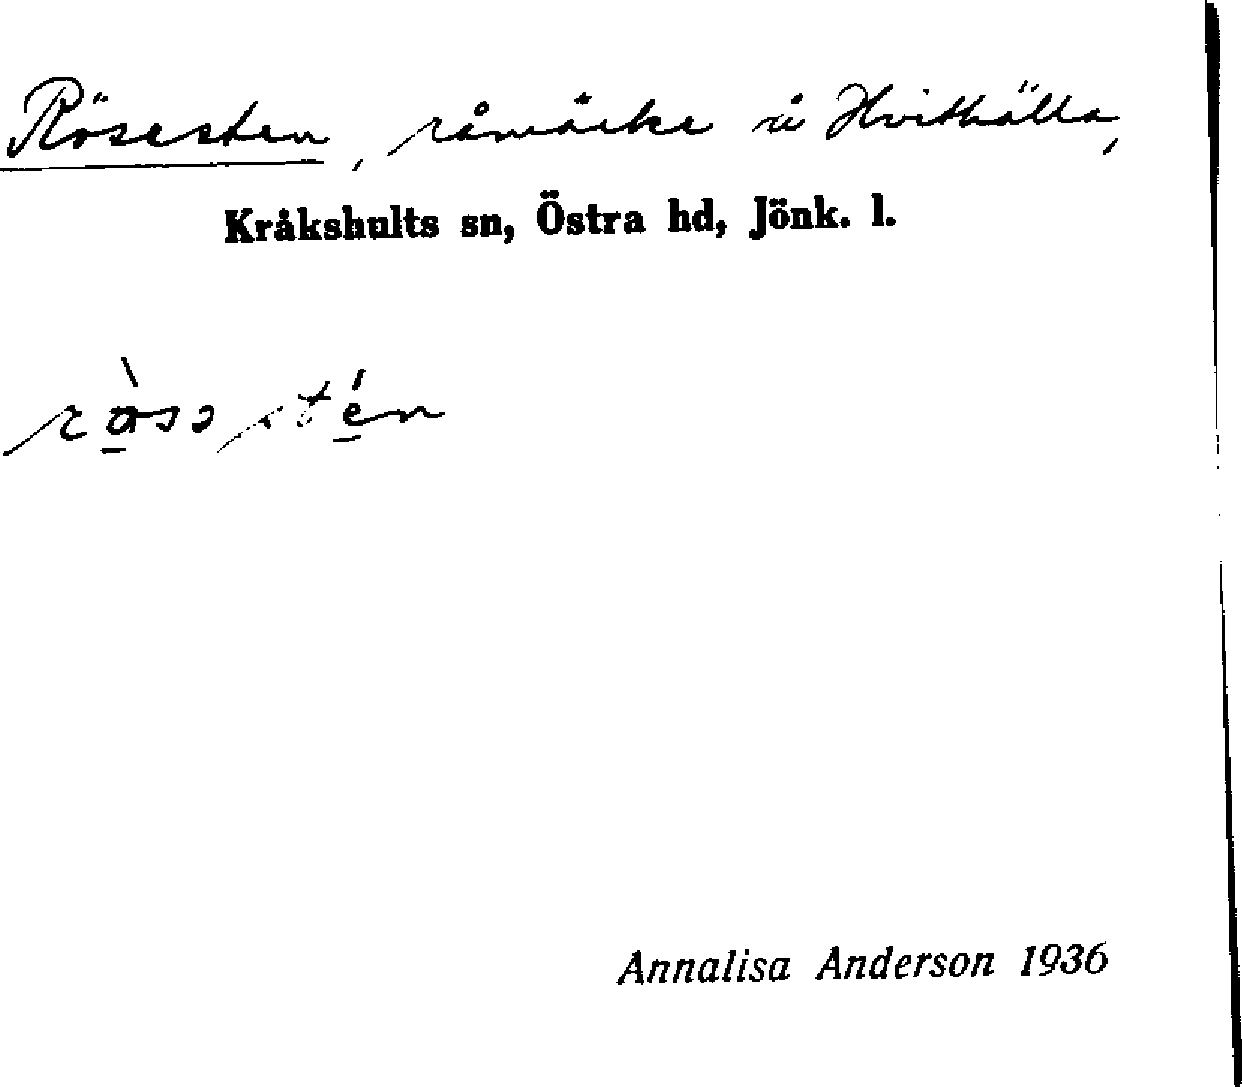 Rösesten, råmärke å Hvithälla,
Kråkshults sn, Östra hd, Jönk. l.
Annalisa Anderson 1936